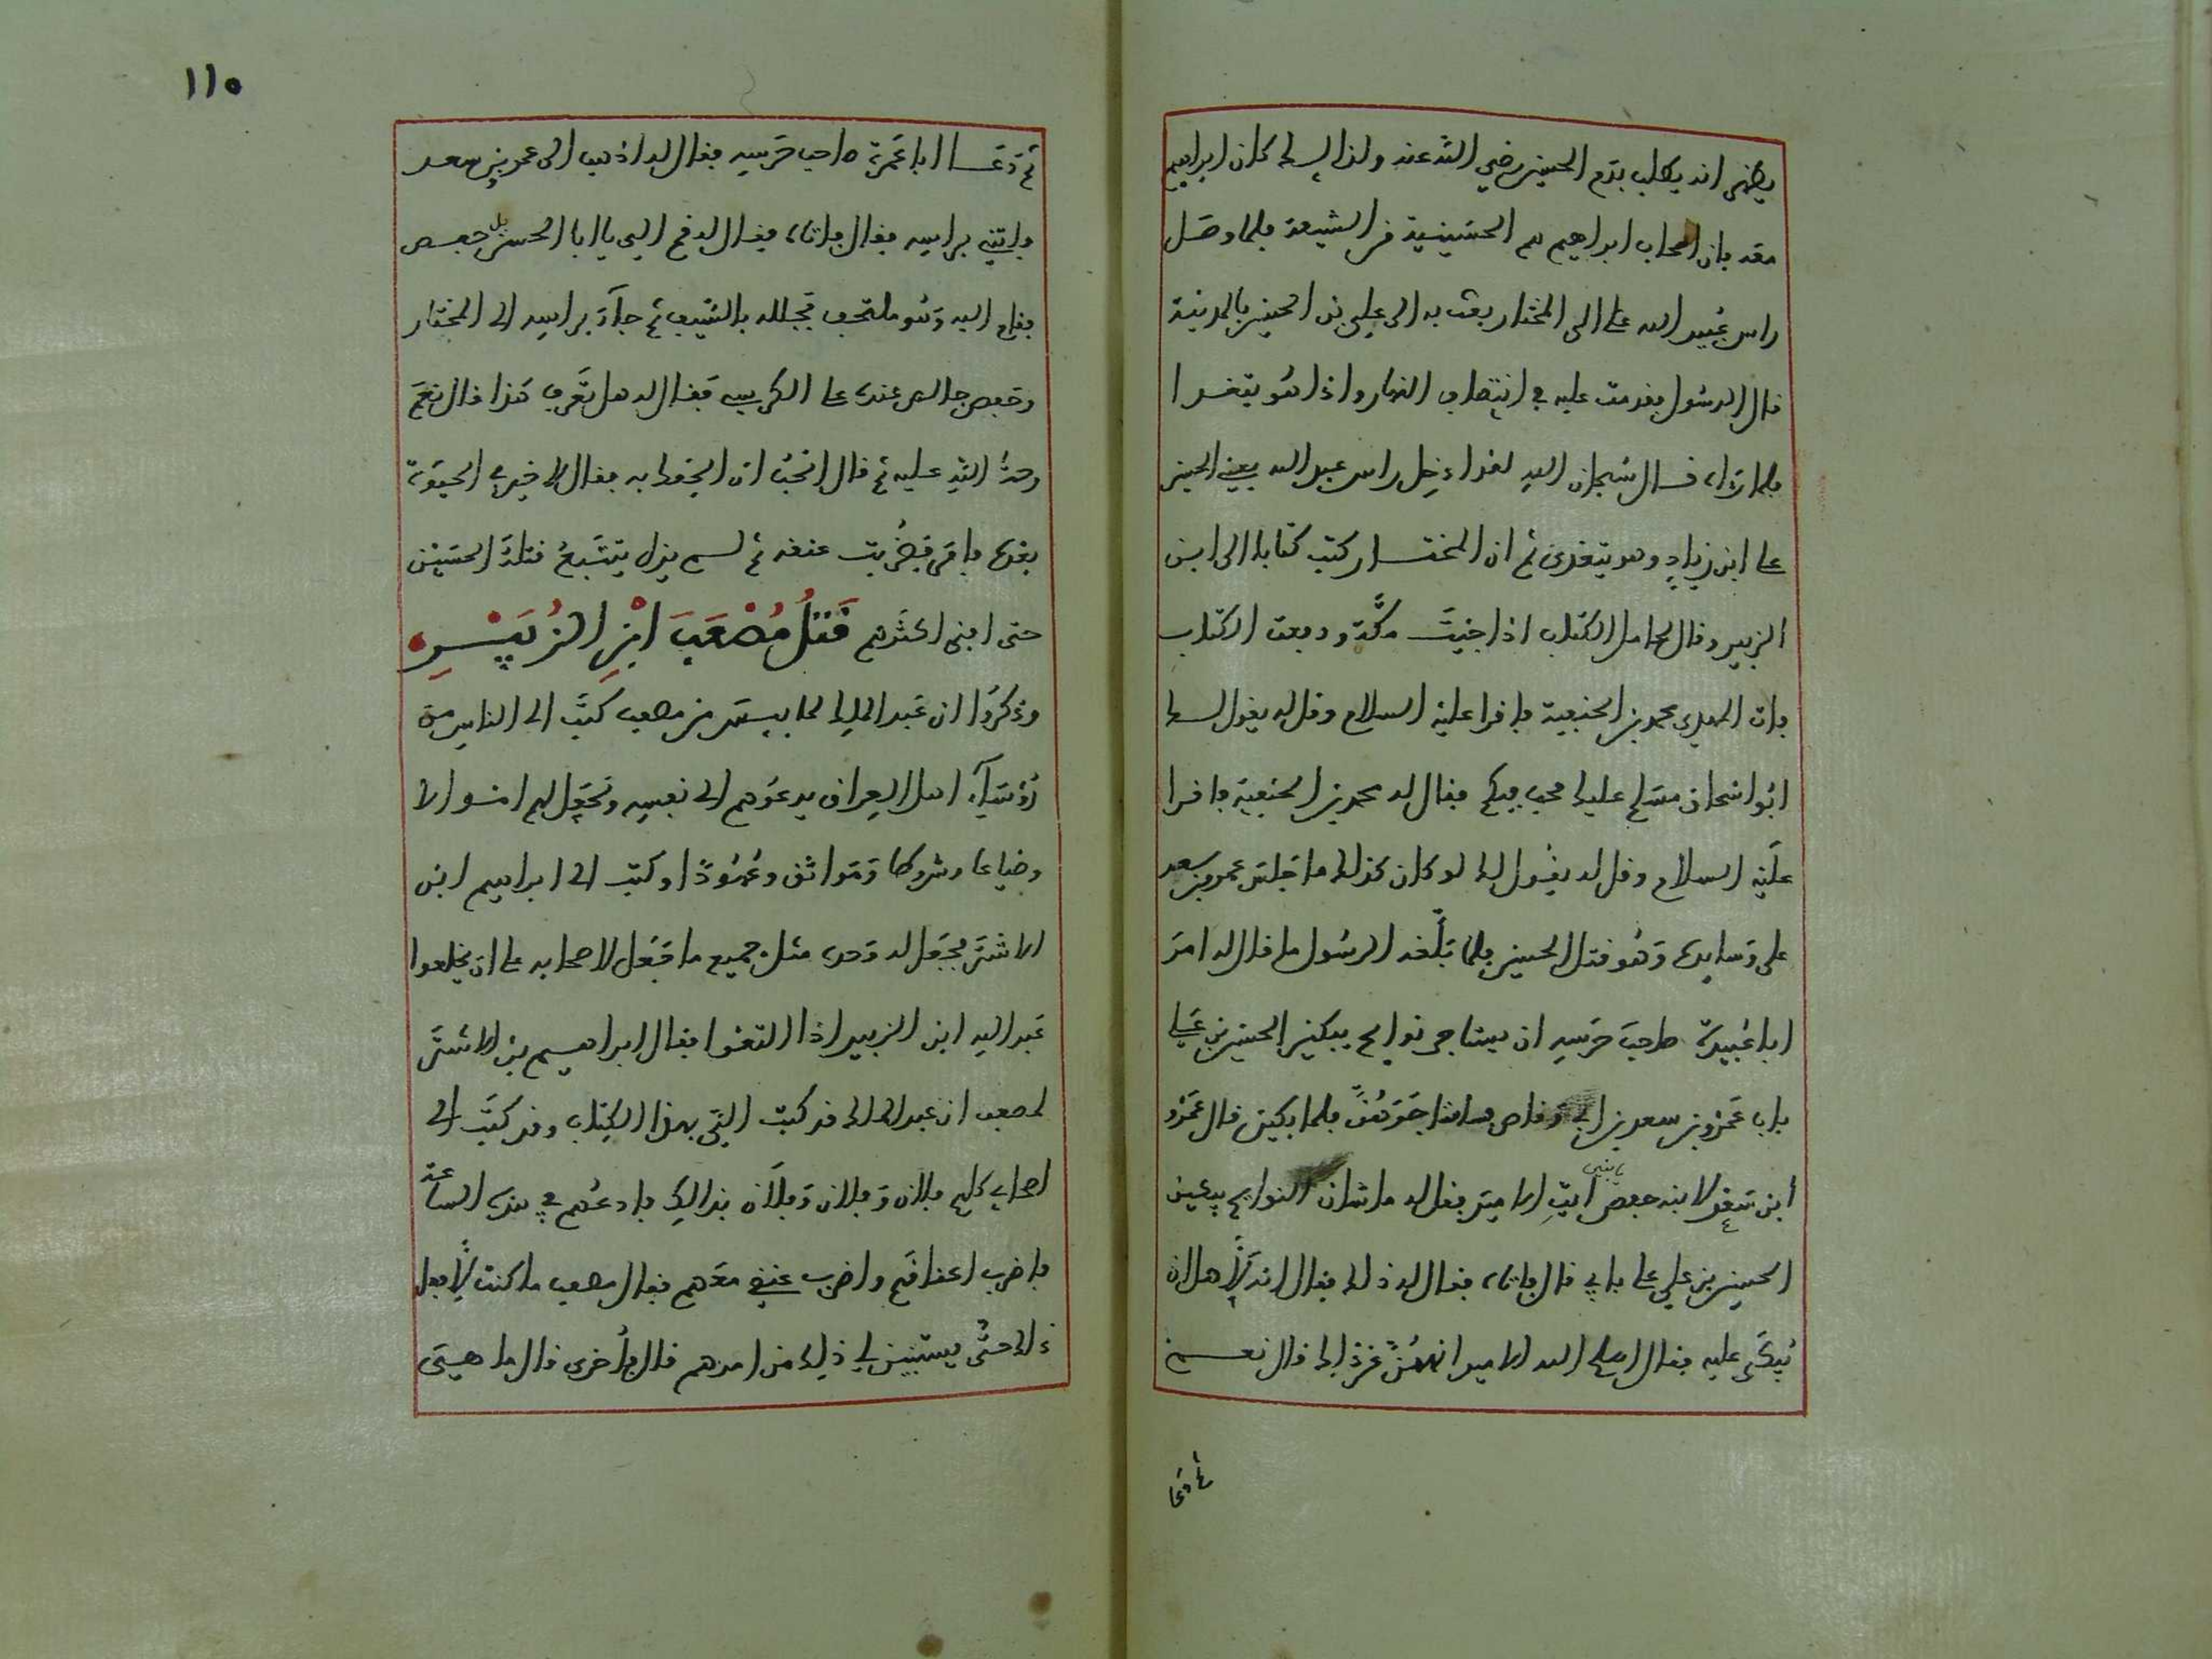 يظهر انه يطلب بدم الحسين رضي الله عنه ولذالك كان ابراهيم
معه بان اصحاب ابراهيم هم الحسينية من الشيعة فلما وصل
راس عبيد الله على الى المختار بعث به الى علي بن الحسين بالمدينة
قال الرسول فقدمت عليه في انتصاف النهار واذا هو يتغدا
فلما رءاه قال سبحان الله لقد ادخل راس عبد الله يعني الحسين
على ابن زياد وهو يتغدى ثم ان المختار كتب كتابا الى ابن
الزبير وقال لحامل الكتاب اذا جيت مكة ودفعت الكتاب
فات المهدي محمد بن الحنفية فاقرا عليه السلام وقل له يقول لك
ابو اسحاق مسلم عليك محب فيكم فقال له محمد بن الحنفية فاقرا
عليه السلام وقل له يقول لك لو كان كذلك ما جلس عمر بن سعد
على وسايده وهو قتل الحسين فلما بلغه الرسول ما قال له امر
ابا عبيدة صاحب حرسه ان يستاجر نوايح يبكين الحسين بن علي
باب عمرو بن سعد بن ابي وقاص فلما بكين قال عمرو
ابن سعد لابنه حفص يا بني ايت الامير فقل له ما شان النوايح يبكين
الحسين بن علي على بابي قال فاتاه فقال له ذلك فقال انه لاهل ان
يبكى عليه فقال اصلح الله الامير انههن عن ذلك قال نعم
ثم دعا
١١٥
ثم دعا ابا عمرة صاحب حرسه فقال له اذهب الى عمر بن سعد
فاتني براسه فقال فاتاه فقال له قم الي يا ابا حفص
فقام اليه وهو ملتحف فجلله بالسيف ثم جاء براسه الى المختار
وحفص جالس عنده على الكرسي فقال له هل تعرف هذا قال نعم
رحمة الله عليه ثم قال اتحب ان الحقك به فقال لا خير في الحيوة
بعده فامر فضربت عنقه ثم لم يزل يتتبع قتلة الحسين
حتى افنى اكثرهم قتل مصعب ابن الزبير
وذكروا ان عبد الملك لما من مصعب كتب الى الناس من
رؤساء اهل العراق يدعوهم الى نفسه ويجعل لهم اموالا
وضياعا وشروطا ومواثق وعهودا وكتب الى ابراهيم ابن
الاشتر فجعل له وحده مثل جميع ما جعل لاصحابه على ان يخلعوا
عبد الله ابن الزبير اذا التقوا فقال ابراهيم بن الاشتر
لمصعب ان عبد الملك قد كتب الي بهذا الكتاب وقد كتب الى
اصحابي كلهم فلان وفلان وفلان بذالك فادعهم في هذه الساعة
فاضرب اعناقهم واضرب عنقي معهم فقال مصعب ما كنت لافعل
ذالك حتى يستبين لي ذلك من امرهم قال فاخرى قال ما هي